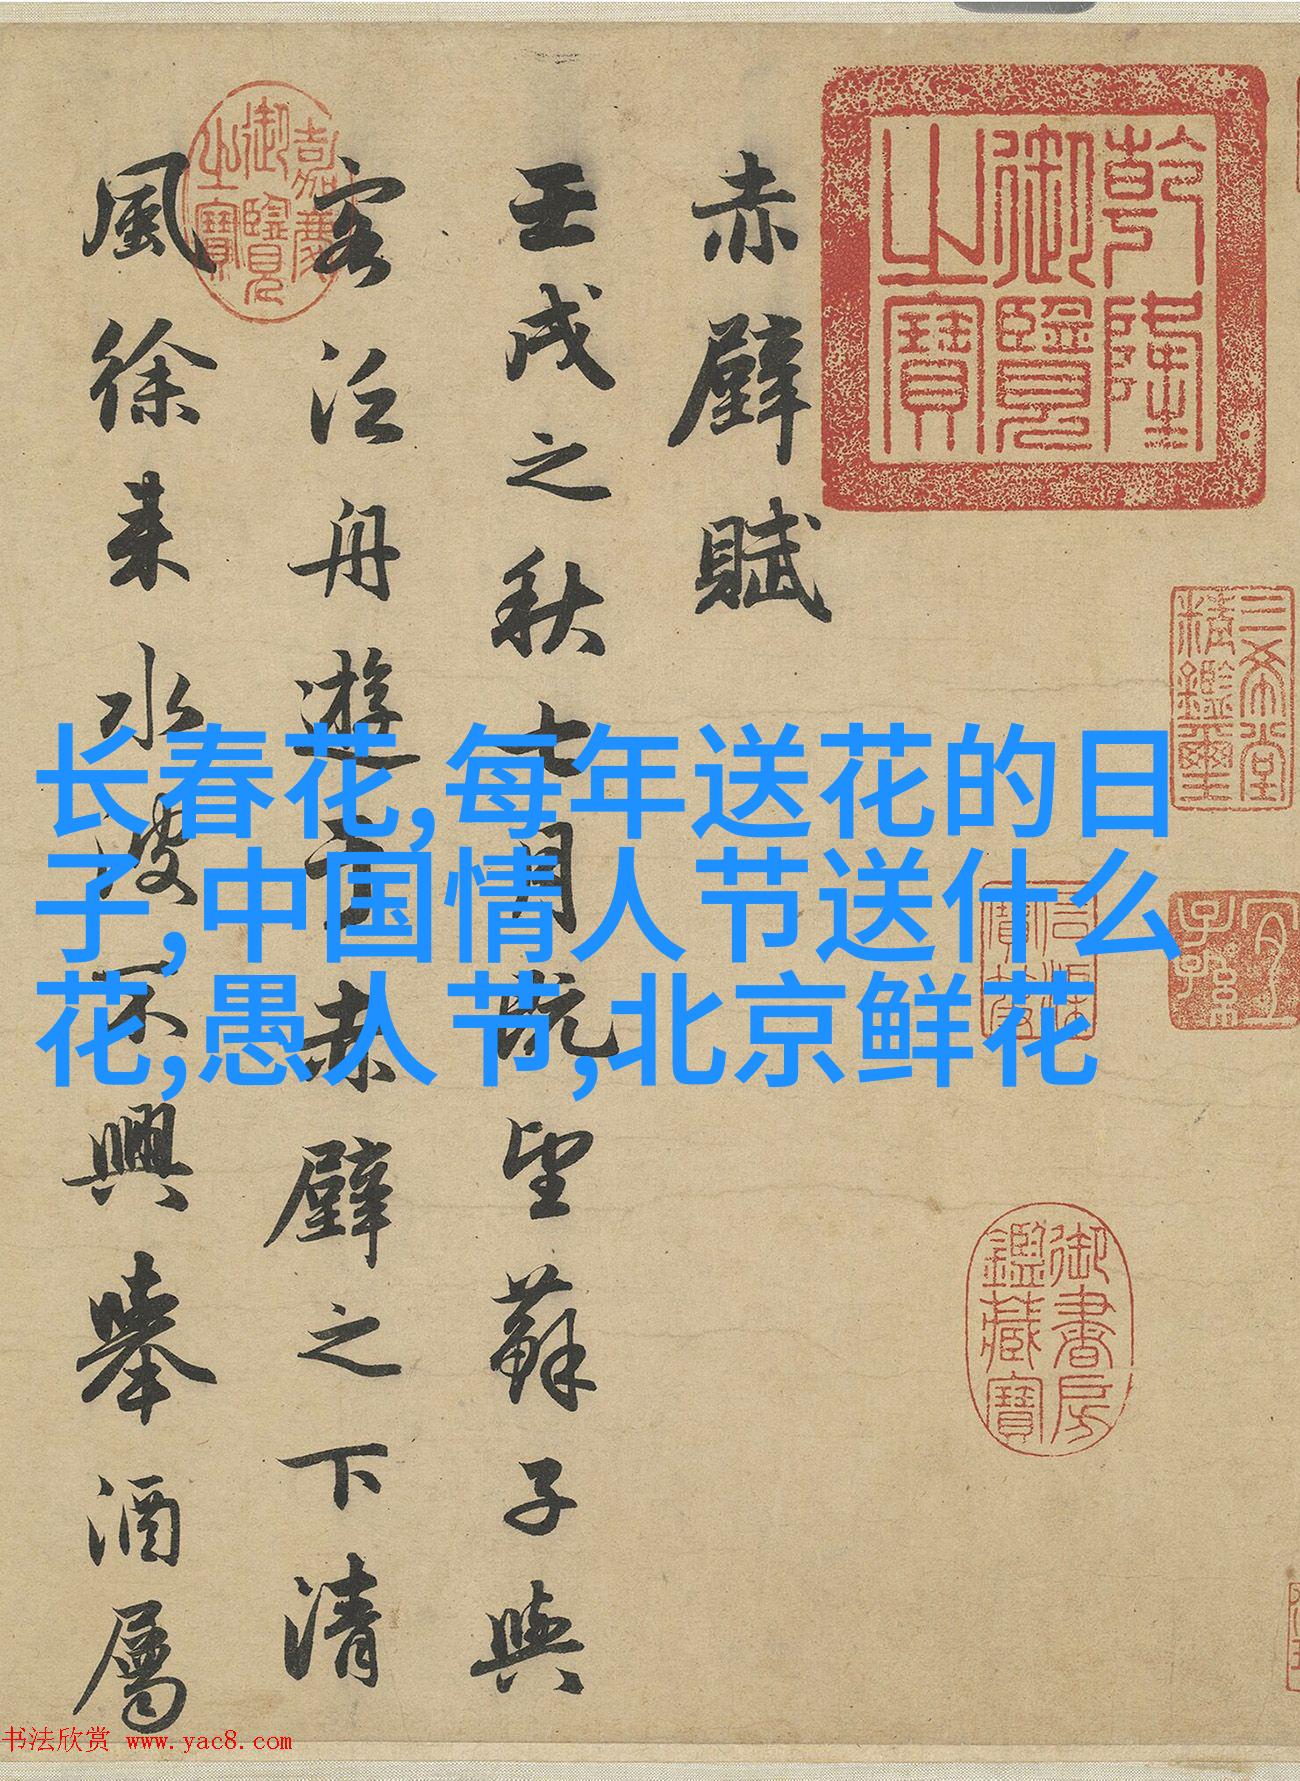 赤壁賦
壬戌之秋七月既望蘇子與
客泛舟遊于赤壁之下清
風徐来水波不興舉酒屬
乾隆御覽之寶
嘉慶御覽之寶
三希堂精鑑璽
宜子孫
御書房鑑藏寶
长春花,每年送花的日
子,中国情人节送什么
花,愚人节,北京鲜花
书法欣赏 www.yac8.com